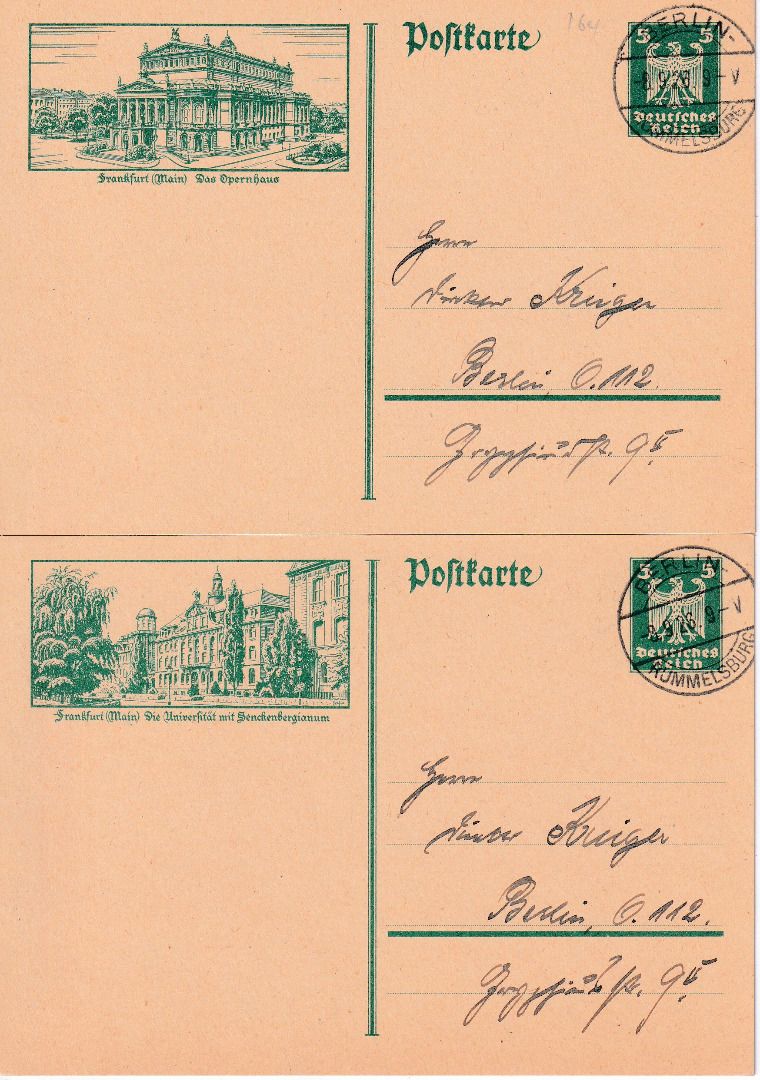 164
Postkarte
5 5
Deutsches
Reich
BERLIN-
9-V
RUMMELSBURG
Frankfurt (Main) Das Opernhaus
Herrn
Krüger
Berlin, O.112.
9 II
Postkarte
5 5
Deutsches
Reich
BERLIN-
8.9.26 9-V
RUMMELSBURG
Frankfurt (Main) Die Universität mit Senckenbergianum
Herrn
Krüger
Berlin, O.112.
9 II